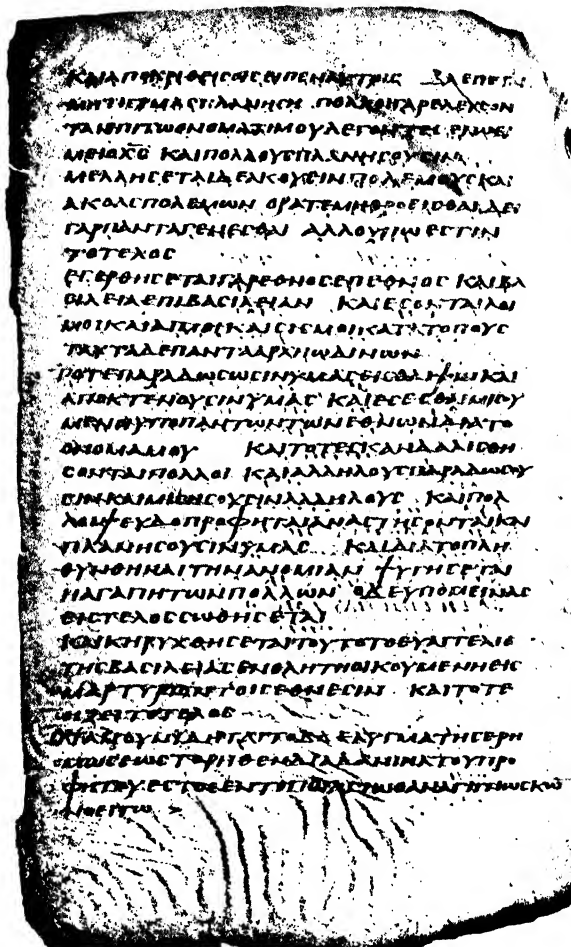 ΚΑΙΑΠΟΚΡΙΘΕΙϹΟΙΗϹΕΙΠΕΝΑΥΤΟΙϹ ΒΛΕΠΕΤΕ
ΜΗΤΙϹΥΜΑϹΠΛΑΝΗϹΗ ΠΟΛΛΟΙΓΑΡΕΛΕΥϹΟΝ
ΤΑΙΕΠΙΤΩΟΝΟΜΑΤΙΜΟΥΛΕΓΟΝΤΕϹ ΕΓΩΕΙ
ΜΕΙΟΧΡϹ ΚΑΙΠΟΛΛΟΥϹΠΛΑΝΗϹΟΥϹΙΝ
ΜΕΛΛΗϹΕΤΑΙΔΕΑΚΟΥΕΙΝΠΟΛΕΜΟΥϹΚΑΙ
ΑΚΟΑϹΠΟΛΕΜΩΝ ΟΡΑΤΕΜΗΘΡΟΕΙϹΘΑΙΔΕΙ
ΓΑΡΠΑΝΤΑΓΕΝΕϹΘΑΙ ΑΛΛΟΥΠΩΕϹΤΙΝ
ΤΟΤΕΛΟϹ
ΕΓΕΡΘΗϹΕΤΑΙΓΑΡΕΘΝΟϹΕΠΕΘΝΟϹ ΚΑΙΒΑ
ϹΙΛΕΙΑΕΠΙΒΑϹΙΛΕΙΑΝ ΚΑΙΕϹΟΝΤΑΙΛΟΙ
ΜΟΙΚΑΙΛΙΜΟΙΚΑΙϹΙϹΜΟΙΚΑΤΑΤΟΠΟΥϹ
ΤΑΥΤΑΔΕΠΑΝΤΑΑΡΧΗΩΔΙΝΩΝ
ΤΟΤΕΠΑΡΑΔΩϹΩϹΙΝΥΜΑϹΕΙϹΘΛΙΨΙΝΚΑΙ
ΑΠΟΚΤΕΝΟΥϹΙΝΥΜΑϹ ΚΑΙΕϹΕϹΘΑΙΜΙϹΟΥ
ΜΕΝΟΙΥΠΟΠΑΝΤΩΝΤΩΝΕΘΝΩΝΔΙΑΤΟ
ΟΝΟΜΑΜΟΥ ΚΑΙΤΟΤΕϹΚΑΝΔΑΛΙϹΘΗ
ϹΟΝΤΑΙΠΟΛΛΟΙ ΚΑΙΑΛΛΗΛΟΥϹΠΑΡΑΔΩϹΟΥ
ϹΙΝΚΑΙΜΙϹΗϹΟΥϹΙΝΑΛΛΗΛΟΥϹ ΚΑΙΠΟΛ
ΛΟΙΨΕΥΔΟΠΡΟΦΗΤΑΙΑΝΑϹΤΗϹΟΝΤΑΙΚΑΙ
ΠΛΑΝΗϹΟΥϹΙΝΥΜΑϹ ΚΑΙΔΙΑΤΟΠΛΗ
ΘΥΝΘΗΝΑΙΤΗΝΑΝΟΜΙΑΝ ΨΥΓΗϹΕΤΑΙ
ΗΑΓΑΠΗΤΩΝΠΟΛΛΩΝ ΟΔΕΥΠΟΜΕΙΝΑϹ
ΕΙϹΤΕΛΟϹϹΩΘΗϹΕΤΑΙ
ΚΑΙΚΗΡΥΧΘΗϹΕΤΑΙΤΟΥΤΟΤΟΕΥΑΓΓΕΛΙΟ
ΤΗϹΒΑϹΙΛΕΙΑϹΕΝΟΛΗΤΗΟΙΚΟΥΜΕΝΗΕΙϹ
ΜΑΡΤΥΡΙΟΝΤΟΙϹΕΘΝΕϹΙΝ ΚΑΙΤΟΤΕ
ΗΞΕΙΤΟΤΕΛΟϹ
ΟΤΑΝΟΥΝΥΔΗΤΑΙΤΟΒΔΕΛΥΓΜΑΤΗϹΕΡΗ
ΜΩϹΕΩϹΤΟΡΗΘΕΝΔΙΑΔΑΝΙΗΛΤΟΥΠΡΟ
ΦΗΤΟΥ ΕϹΤΟϹΕΝΤΟΠΩΑΓΙΩΟΑΝΑΓΙΝΩϹΚΩ
ΝΟΕΙΤΩ